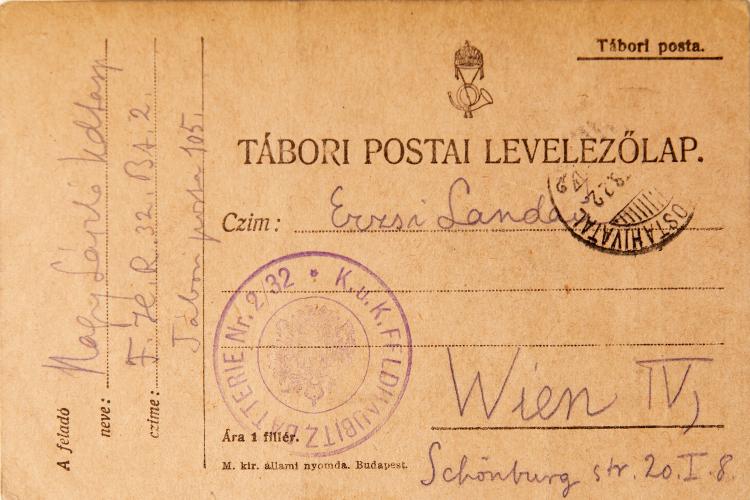 Tábori posta.
TÁBORI POSTAI LEVELEZŐLAP.
Czim: Erzsi Landa
POSTAHIVATAL
K.u.K. FELDHAUBITZBATTERIE Nr. 2/32 *
Wien IV,
Schönburg str. 20. I. 8.
Ára 1 fillér.
M. kir. állami nyomda. Budapest.
A feladó
neve: Nagy László
czime: F. H. R. 32. Ba. 2.
Tábori posta 105.